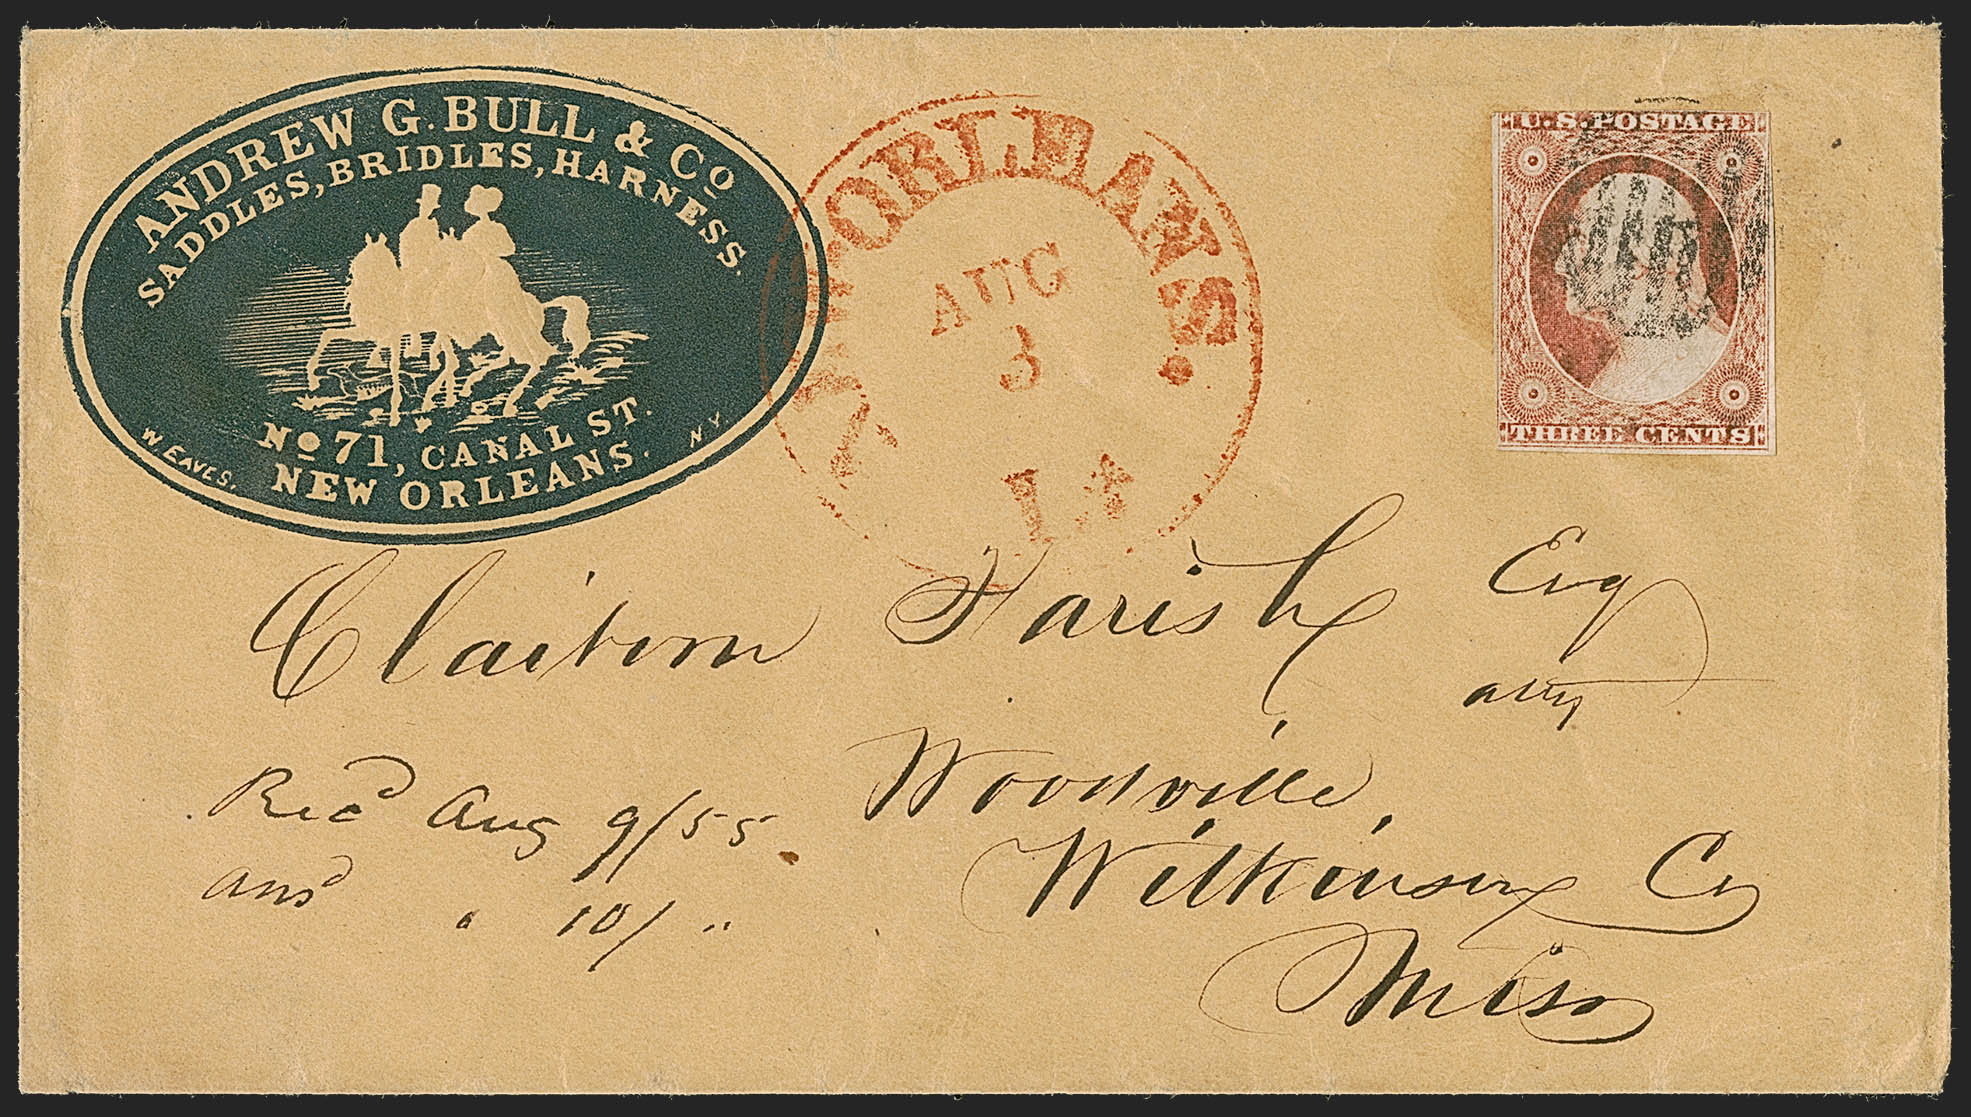 ANDREW G. BULL & Co
SADDLES, BRIDLES, HARNESS.
No 71, CANAL ST.
NEW ORLEANS.
W. EAVES. N.Y.
N. ORLEANS.
AUG
3
La
U.S. POSTAGE
THREE CENTS
Claiborn Farish Esq
atty
Woodville,
Wilkinson Co
Miss
Recd Aug 9/55
Ansd " 10/ "